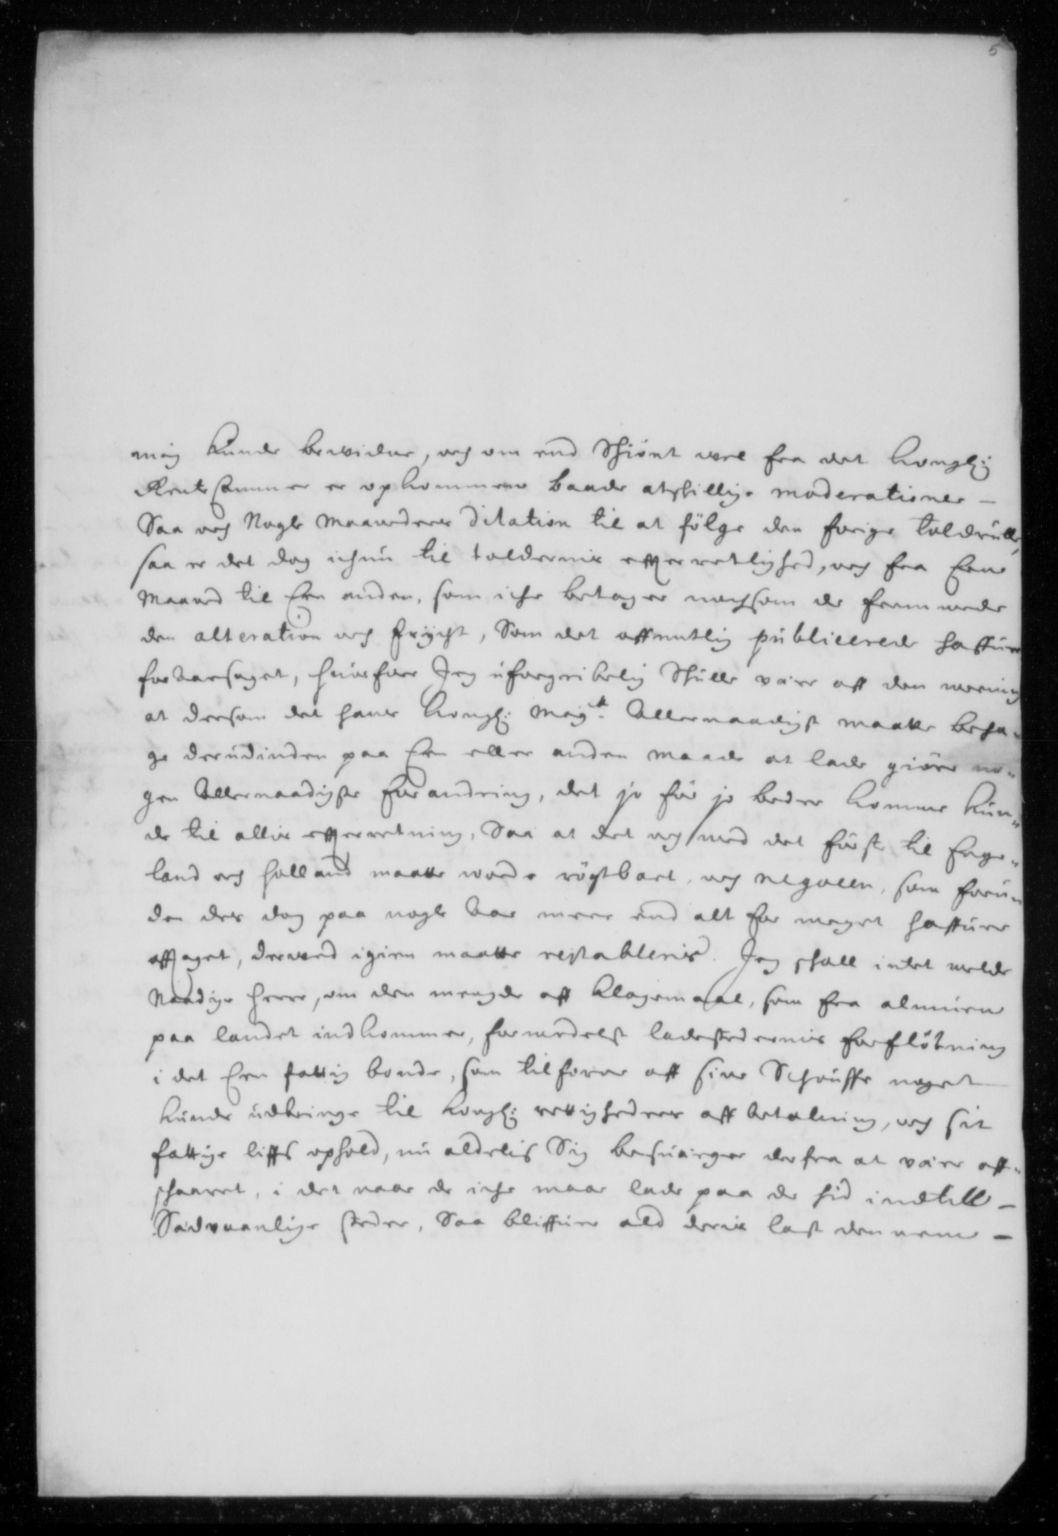 5
mig kunde bevidne, och om end Schiönt vel fra det Konglig
Rentekammer er opkommen baade atschillige moderationer —
Saa och Nogle Maaneders Dilation til at fölge den forige toldrulle,
saa er det dog ichun til toldernis effterretlighed, och fra Een
Maaned til Een anden, som iche betager nochsom de fremmede
den alteration och frÿcht, Som det offentlig publicerede haffuer
foraarsaget, huorfore Jeg uforgribelig Skulle være aff den meening
at dersom det hans Kongl: Maÿtt. Allernaadigst maatte beha-
ge derudinden paa Een eller anden maade at lade giöre no-
gen Allernaadigste forandring, det jo för jo bedre komme kun-
de til allis effterretning, Saa at det och med det förste til Enge-
land och Holland maatte worde rögtbart, och negocen, som forun-
den des dog paa nogle Aar meere end alt for meget haffuer
afftaget, derved igien maatte restableris. Jeg schall intet melde
Naadige Herre, om den mengde aff klagemaal, som fra almuen
paa landet indkommer, formedelst ladestedernis forflötning
i det Een fattig bonde, som tilforne aff sine Schouffe noget
kunde udbringe til Kongl: rettigheders affbetalning, och sit
fattige liffs ophold, nu aldelis Sig besuerger derfra at være aff-
schaaret, i det naar de iche maae lade paa de hid indtill —
Sædvaanlige steder, Saa bliffuer ald deris last dennem —